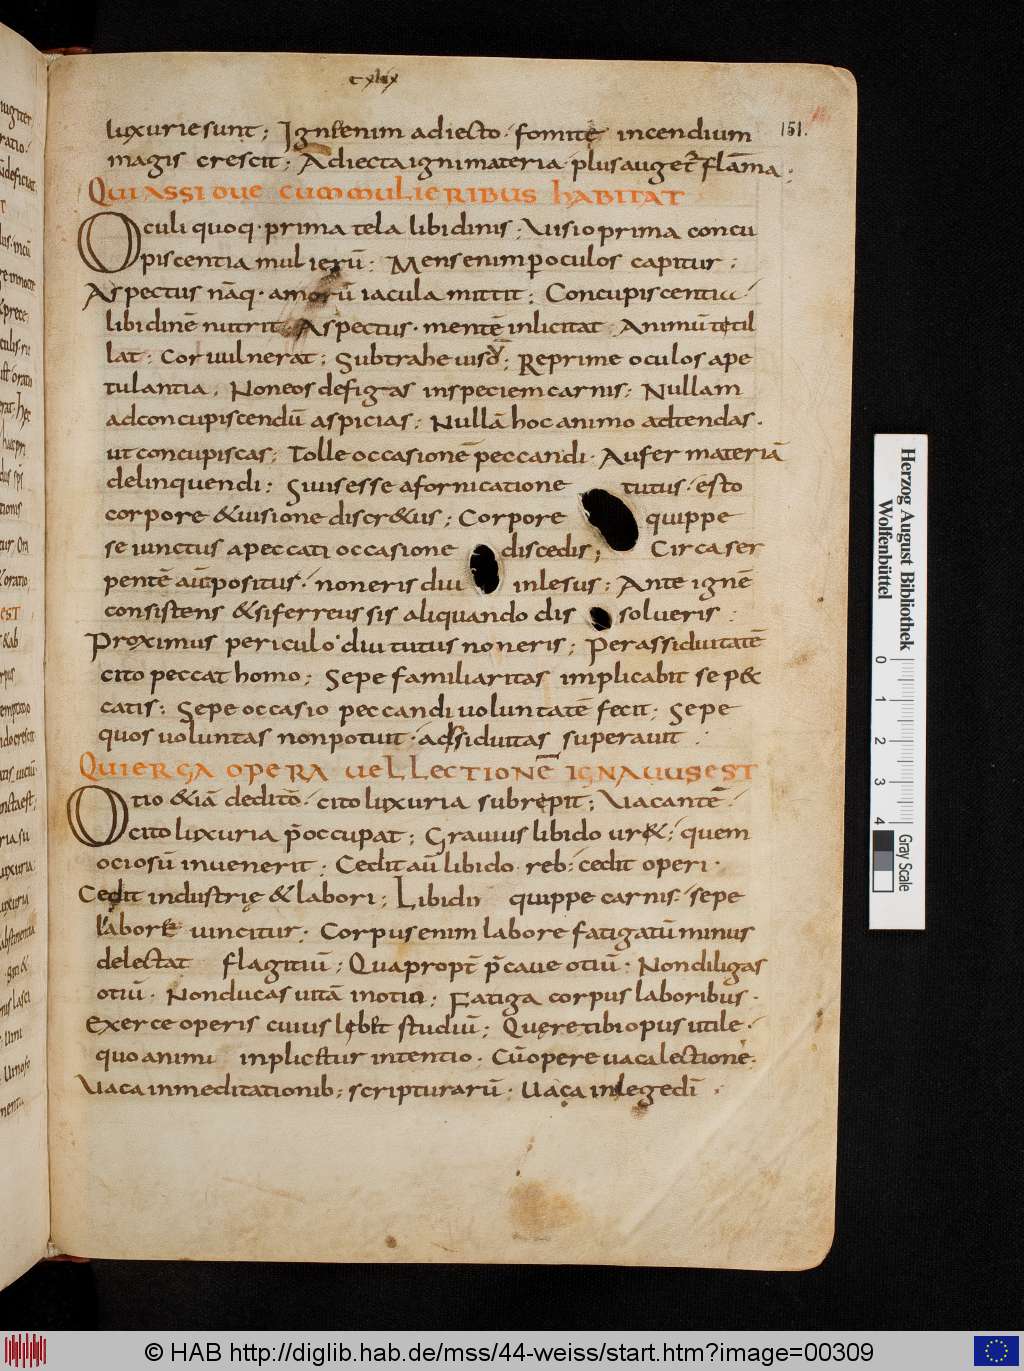 cxlix
151.
luxurie sunt; Ignis enim adiecto · fomite incendium
magis crescit; Adiecta igni materia plus auget flāma;
QUI ASSIDUE CUM MULIERIBUS HABITAT
Oculi quoq· prima tela libidinis; Uisio prima concu
piscentia mulierū; Mens enim p oculos capitur;
Aspectus nāq· amorū iacula mittit; Concupiscentiā
libidinē nutrit; Aspectus · mentē inlicitat; Animū titil
lat; Cor uulnerat; Subtrahe uisū; Reprime oculos a pe
tulantia; Non eos defigas in speciem carnis; Nullam
ad concupiscendū aspicias; Nullā hoc animo adtendas ·
ut concupiscas; Tolle occasionē peccandi · Aufer materiā
delinquendi; Si uis esse a fornicatione tutus · esto
corpore & uisione discr&us; Corpore quippe
se iunctus a peccati occasione discedis; Circa ser
pentē aūt positus · non eris diu inlesus; Ante ignē
consistens & si ferreus sis aliquando dis solueris;
Proximus periculo diu tutus non eris; Per assiduitatē
cito peccat homo; Sepe familiaritas implicabit sepe
catis; Sepe occasio peccandi uoluntatē fecit; Sepe
quos uoluntas non potuit · adsiduitas superauit;
QUI ERGA OPERA UEL LECTIONĒ IGNAUUS EST
Otio &iā dedito · cito luxuria subrepit; Uacantē ·
cito luxuria p̄occupat; Grauius libido ur&; quem
ociosū inuenerit; Cedit aū libido reb; cedit operi ·
Cedit industrię & labori; Libidi quippe carnis · sepe
labore uincitur; Corpus enim labore fatigatū minus
delectat flagitiū; Quapropt̄ p̄caue otiū · Non diligas
otiū · Non ducas uitā in otio; Fatiga corpus laboribus ·
Exerce operis cuiuslebet studiū; Quęre tibi opus utile ·
quo animi inplicetur intentio · Cū opere uaca lectione·
Uaca in meditationib; scripturarū · Uaca in lege dī ·
Herzog August Bibliothek
Wolfenbüttel
0 1 2 3 4
Gray Scale
© HAB http://diglib.hab.de/mss/44-weiss/start.htm?image=00309